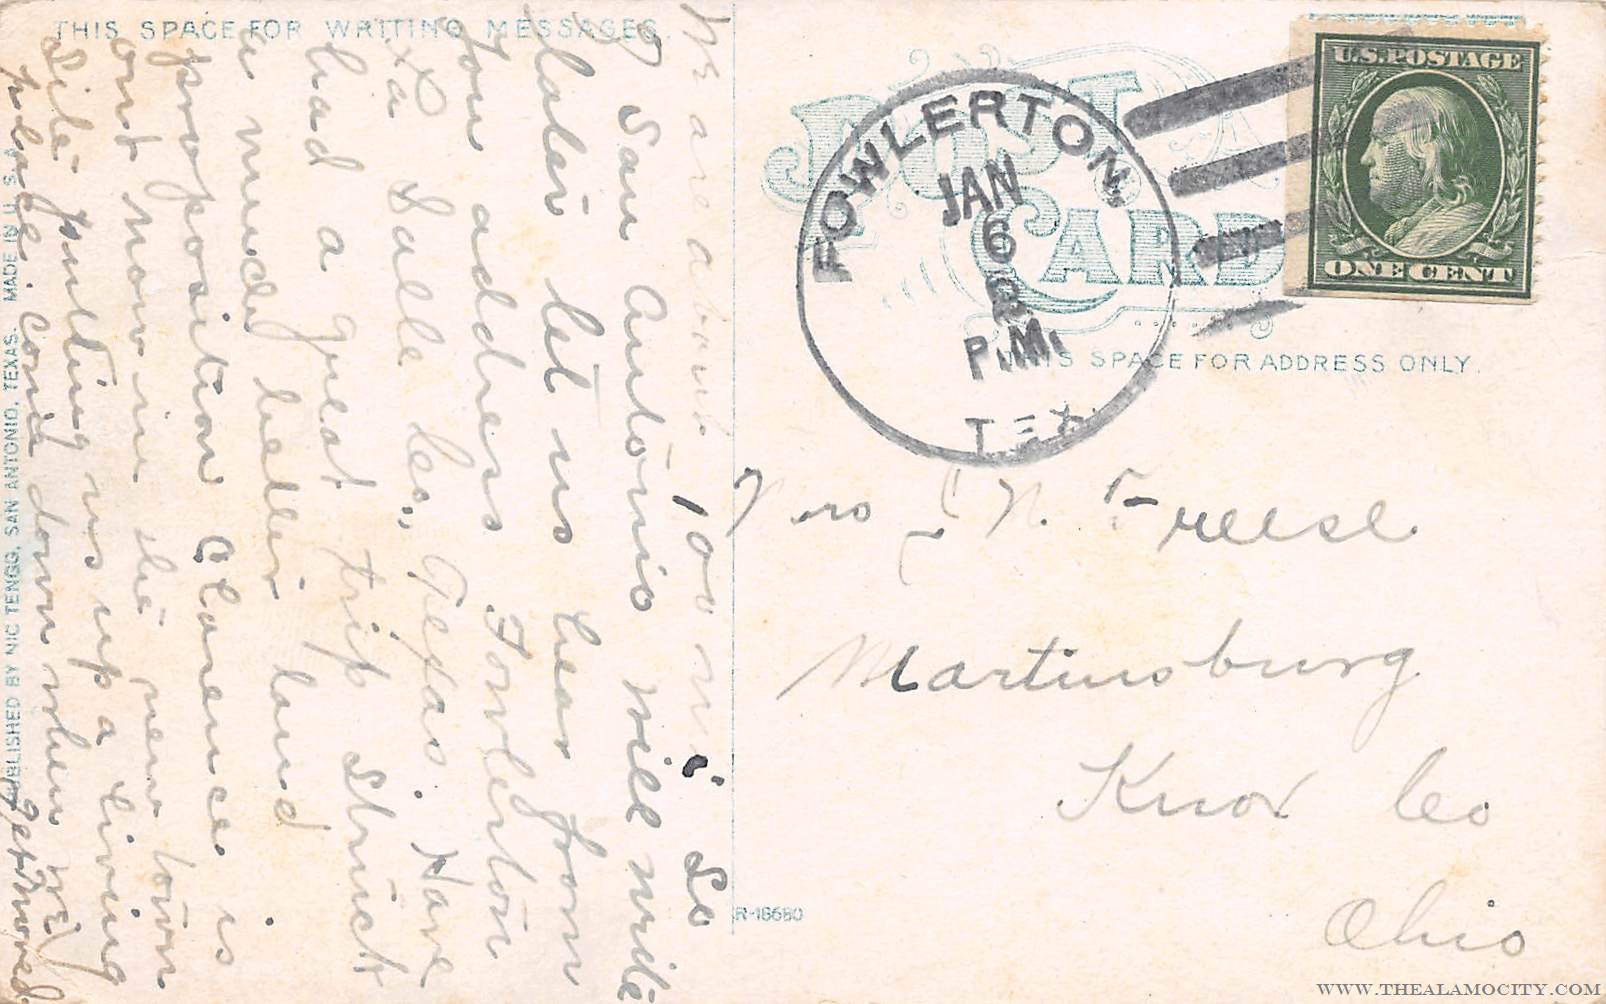 THIS SPACE FOR WRITING MESSAGES.
We are about 100 mi So
of San Antonio will write
later let us hear from
you address Fowlerton
La Salle Co., Texas. Have
had a great trip struck
a much better land
proposition Clarence is
out now in the new town
Site putting us up a living
place. Come down when we
get moved
PUBLISHED BY NIC TENGG, SAN ANTONIO, TEXAS. MADE IN U. S. A.
POST CARD
THIS SPACE FOR ADDRESS ONLY.
FOWLERTON,
JAN
6
P.M.
TEX.
U.S. POSTAGE
ONE CENT
Mrs J N. Freese
Martinsburg
Knox Co
Ohio
R-18680
WWW.THEALAMOCITY.COM